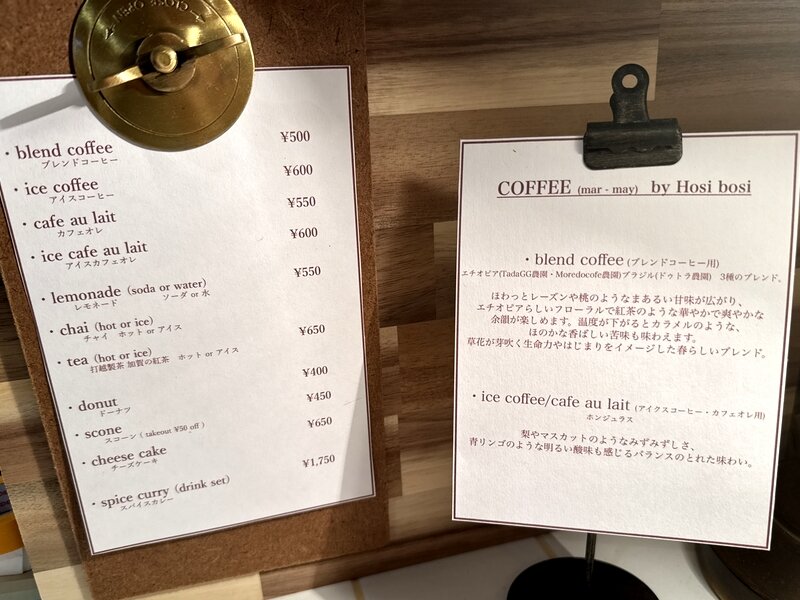 CLOSE OPEN
・blend coffee ¥500
ブレンドコーヒー
・ice coffee ¥600
アイスコーヒー
・cafe au lait ¥550
カフェオレ
・ice cafe au lait ¥600
アイスカフェオレ
・lemonade (soda or water) ¥550
レモネード ソーダ or 水
・chai (hot or ice)
チャイ ホット or アイス
・tea (hot or ice) ¥650
打越製茶 加賀の紅茶 ホット or アイス
・donut ¥400
ドーナツ
・scone ¥450
スコーン ( takeout ¥50 off )
・cheese cake ¥650
チーズケーキ
・spice curry (drink set) ¥1,750
スパイスカレー
COFFEE (mar - may) by Hosi bosi
・blend coffee (ブレンドコーヒー用)
エチオピア(TadaGG農園・Moredocofe農園)ブラジル(ドゥトラ農園) 3種のブレンド、
ほわっとレーズンや桃のようなまあるい甘味が広がり、
エチオピアらしいフローラルで紅茶のような華やかで爽やかな
余韻が楽しめます。温度が下がるとカラメルのような、
ほのかな香ばしい苦味も味わえます。
草花が芽吹く生命力やはじまりをイメージした春らしいブレンド。
・ice coffee/cafe au lait (アイクスコーヒー・カフェオレ用)
ホンジュラス
梨やマスカットのようなみずみずしさ、
青リンゴのような明るい酸味も感じるバランスのとれた味わい。